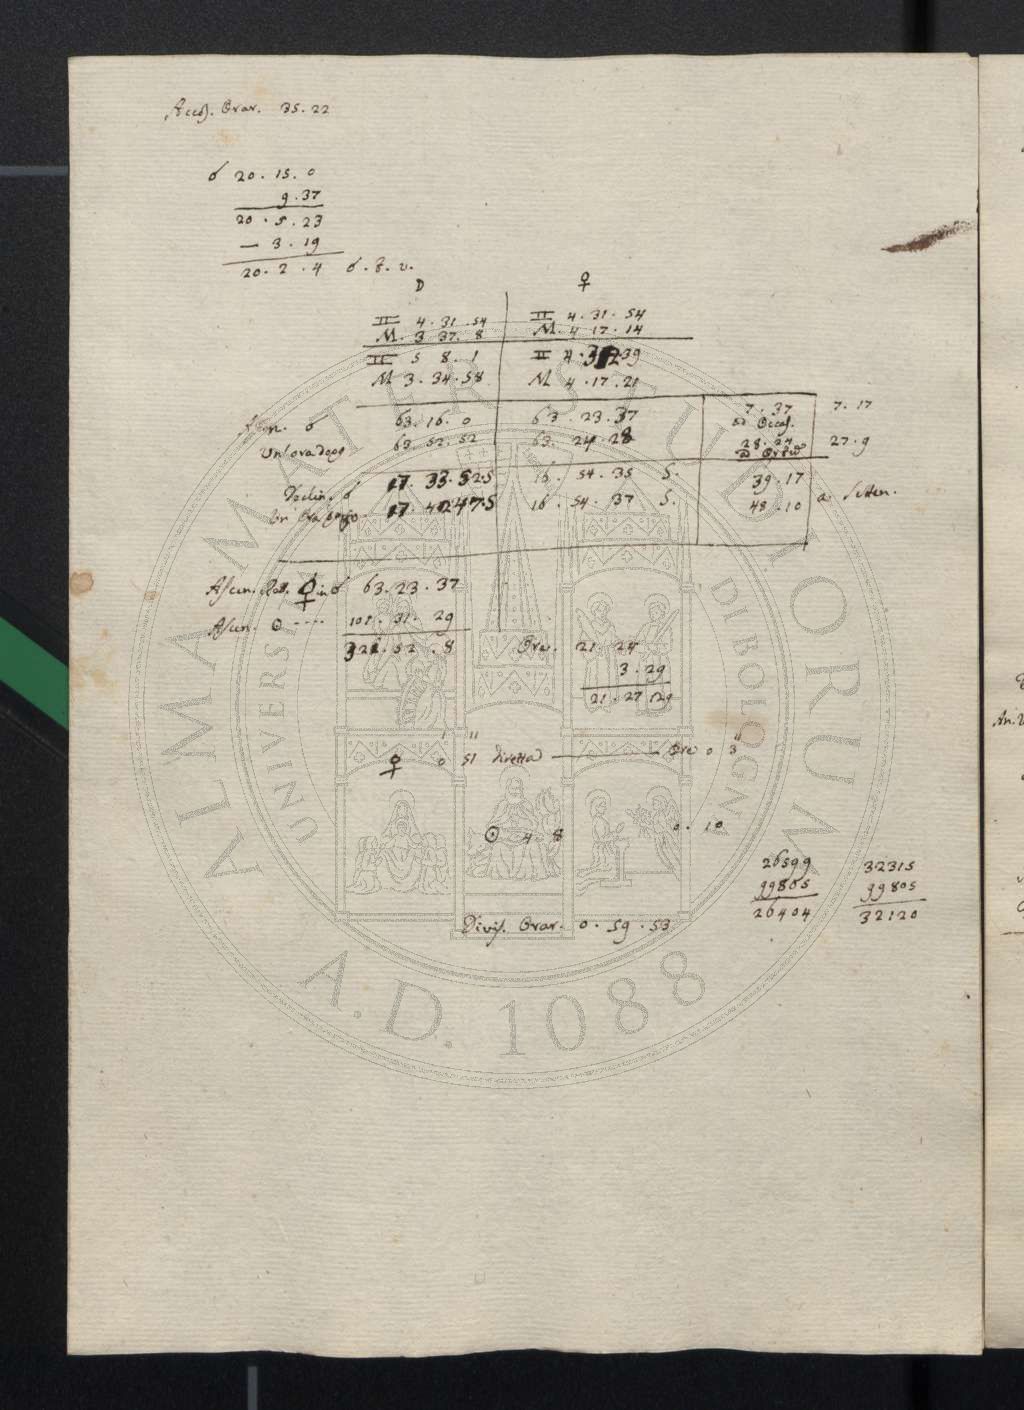 Acces. Orar. 35.22
☌ 20. 15. 0
9. 37
20. 5. 23
— 3. 19
20. 2. 4 ☌. f. v.
☽ ♀
♊ 4. 31. 54 ♊ 4. 31. 54
M. 3 37. 8 M. 4 17. 14
♊ 5 8. 1 ♊ 4. 39
M 3. 34. 58 M 4. 17. 21
7. 37 7. 17
Ascen. ☌ 63. 16. 0 63. 23. 37 ad Occas.
Un'ora dopo 63. 52. 52 63. 24. 28 28. 24 27. 9
Declin. ☌ 17. 33. 52. S 16. 54. 35 S. 39. 17
Un'ora dopo 17. 42 47. S 16. 54. 37 S. 48. 10 a Setten.
Ascen. Ret. ♀ in ☌ 63. 23. 37
Ascen. ☉ .... 101. 31. 29
321. 52. 8 Ore. 21. 24
3. 29
21. 27 29
♀ 0' 51'' diretta — Ore 0 3''
☉ 4. 8 0. 10
26599 32315
99805 99805
26404 32120
Divis. Orar. 0. 59. 53
ALMA MATER STUDIORUM
UNIVERSITÀ DI BOLOGNA
A.D. 1088